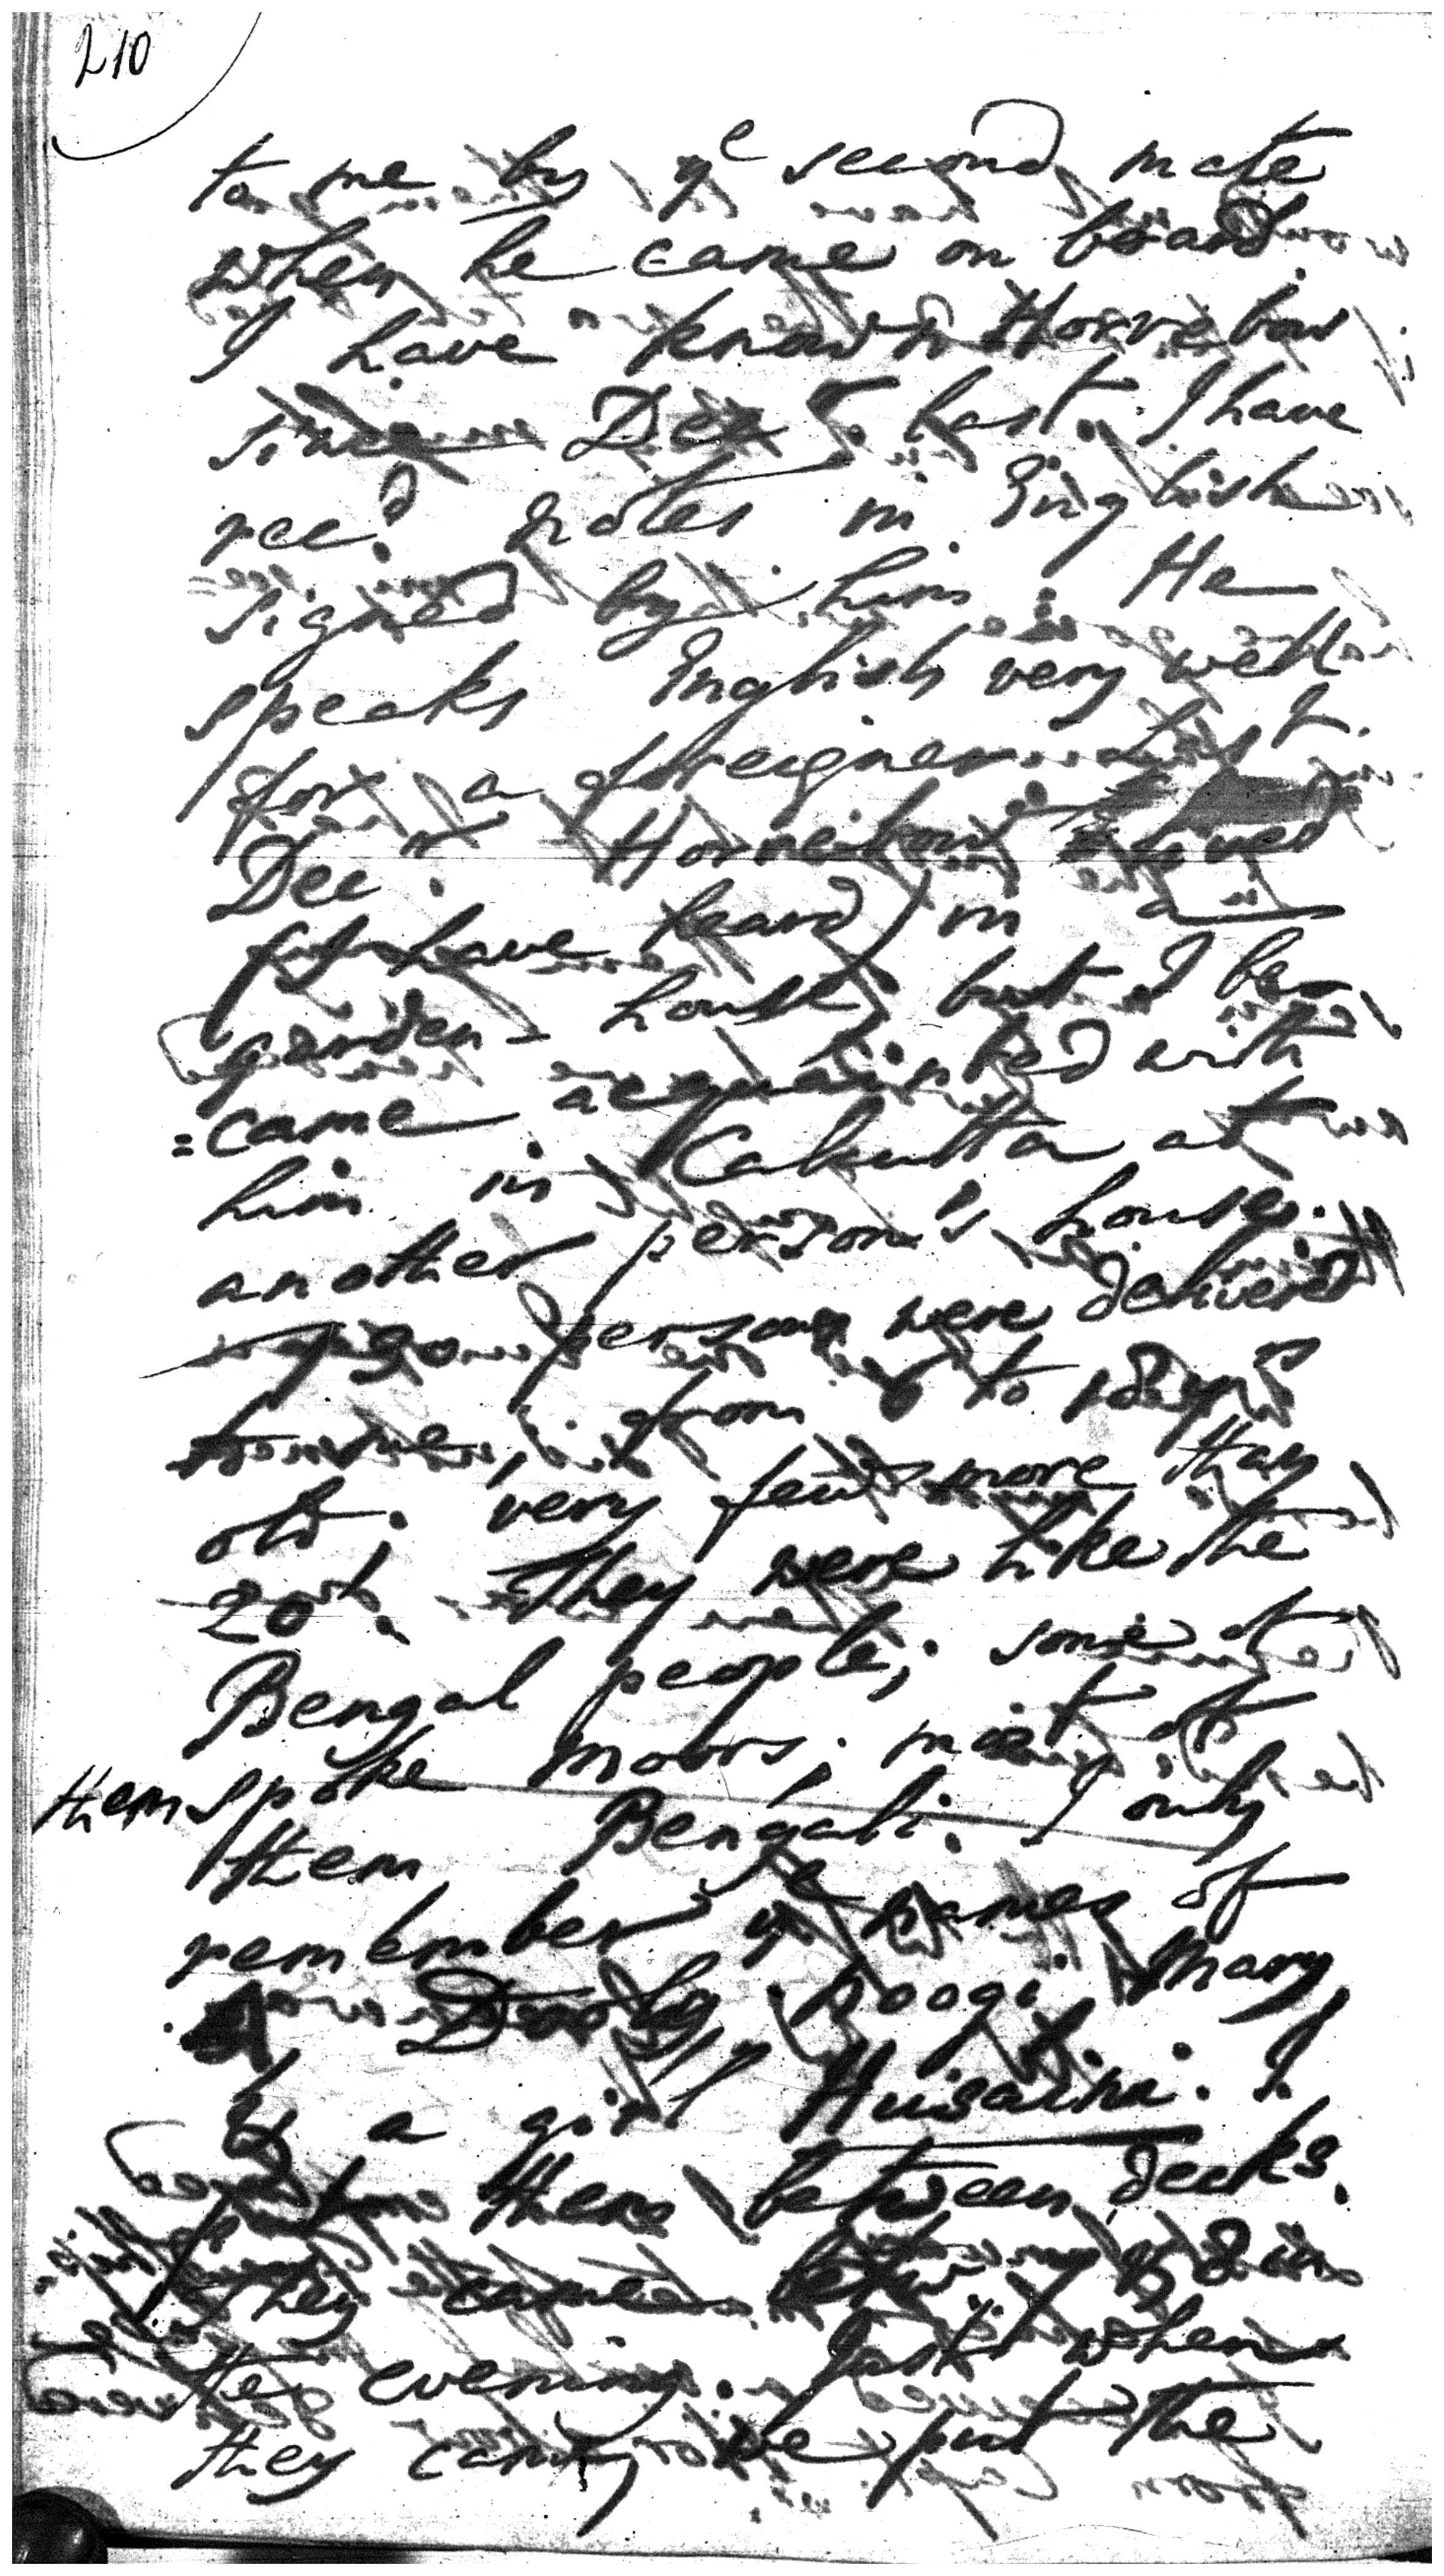 210
to me by ye second mate
when he came on board.
I have known Horrebow
since Decr. last. I have
recd. notes in English
signed by him. He
speaks English very well
for a foreigner. last
Decr. Horrebow lived
(I have heard) in a
garden-house, but I be
=came acquainted with
him in Calcutta at
another person's house.
person were delivered
to me, from 8 to
old; very few more than
20. They were like the
Bengal people; some of
them spoke moors; most of
them Bengali. I only
remember ye names of
Mary
& a girl Husaina. I
put them between decks.
They came betw. 7 & 8 in
the evening. Just when
they came, we put the